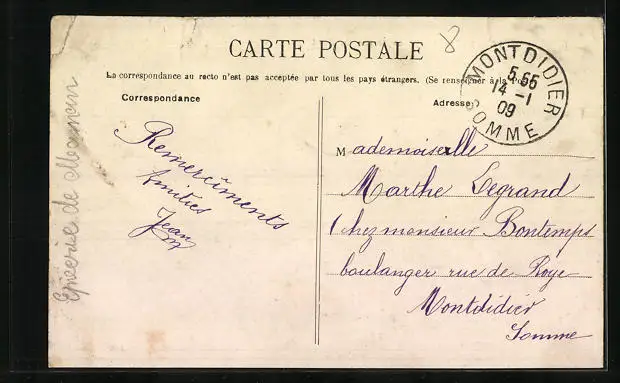 CARTE POSTALE
La correspondance au recto n'est pas acceptée par tous les pays étrangers. (Se renseigner à la Poste)
Correspondance
Adresse
MONTDIDIER
5.55
14 -1
09
SOMME
Remerciments
Amitiés
Jean
Mademoiselle
Marthe Legrand
Chez monsieur Bontemps
boulanger rue de Roye
Montdidier
Somme
Epicerie de Maman
8